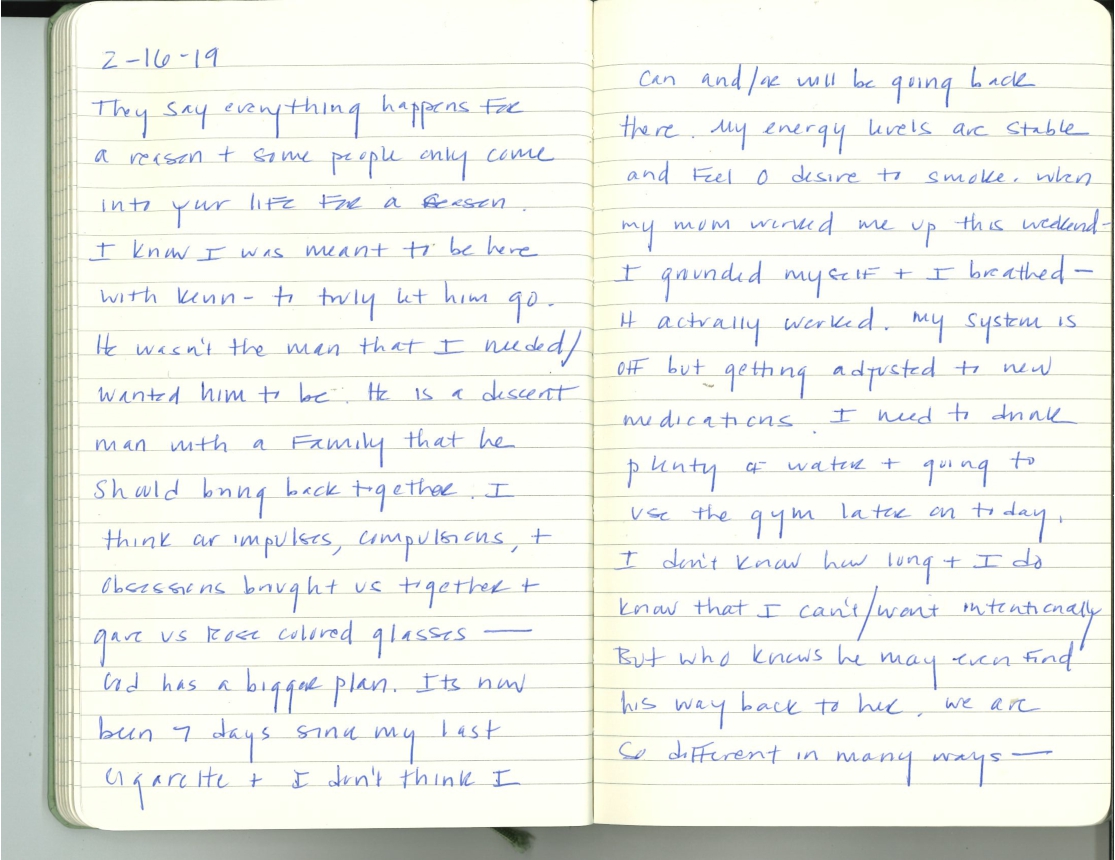 2-16-19
They say everything happens for
a reason + some people only come
into your life for a season.
I know I was meant to be here
with Kenn - to truly let him go.
He wasn't the man that I needed/
wanted him to be. He is a descent
man with a family that he
should bring back together. I
think or impulses, compulsions, +
obsessions brought us together +
gave us rose colored glasses —
God has a bigger plan. Its now
been 7 days since my last
cigarette + I don't think I
can and/or will be going back
there. My energy levels are stable
and feel 0 desire to smoke. when
my mom worked me up this weekend -
I grounded myself + I breathed —
It actually worked. My system is
off but getting adjusted to new
medications. I need to drink
plenty of water + going to
use the gym later on today.
I don't know how long + I do
know that I can't/wont intentionally
But who knows he may even find
his way back to her. we are
so different in many ways —